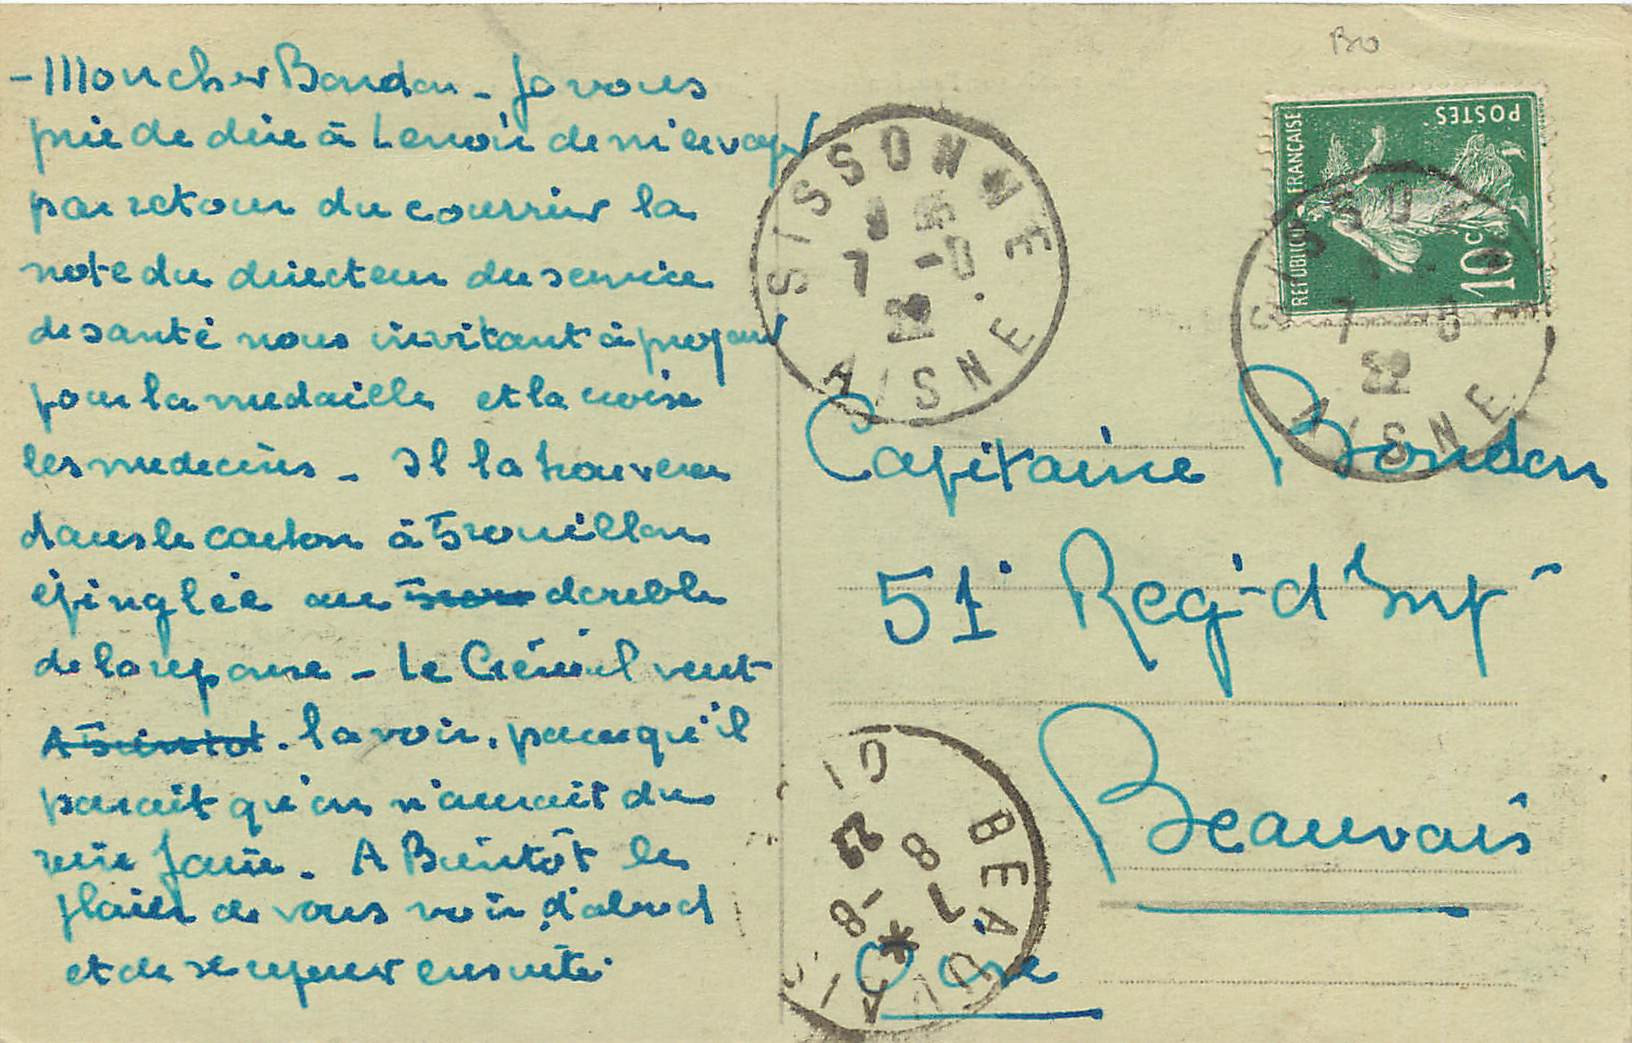 - Mon cher Bondon - Je vous
prie de dire à Lenoir de m'envoyer
par retour du courrier la
note du directeur du service
de santé nous invitant à proposer
pour la medaille et la croix
les medecins - Il la trouvera
dans le carton à Brouillons
épinglée au double
de la reponse - Le Général veut
la voir, parce qu'il
parait qu'on n'aurait du
rien faire. A Bientôt le
plaisir de vous voir d'abord
et de se reposer ensuite.
Bro
REPUBLIQUE FRANÇAISE
POSTES
10c
SISSONNE
7 -8
22
AISNE
SISSONNE
7 -8
22
AISNE
Capitaine Bondon
51e Reg-d'Inf-
Beauvais
Oise
BEAUVAIS
8
7 -8
22
OI